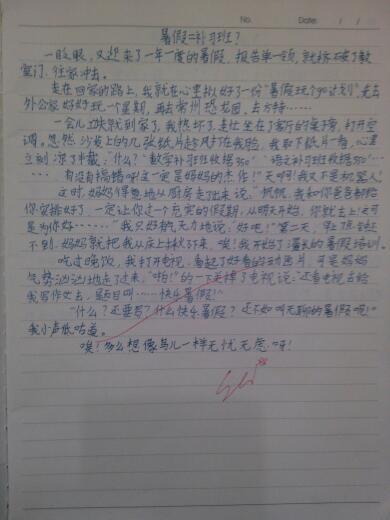 No.
Date: / /
暑假=补习班?
一眨眼,又迎来了一年一度的暑假,报告单一领,就
室门,往家冲去。
走在回家的路上,我就在心里拟好了一份“暑假玩个go计划”先去
外公家好好玩一个星期,再去常州恐龙园,去方特……
一会儿工夫就到家了,我热坏了,走过坐在了客厅的桌旁,打开空
调。忽然,沙发上的几张纸片趁风打在我脸,我取下纸片一看,心里
立刻凉了半截:“什么?‘数学补习班收据’ ‘语文补习班收据
……有没有搞错呀这一定是妈妈的杰作!”天啊!我又不是机器人
这时,妈妈得意地从厨房走了出来说:“帆帆,我和你爸爸都给
你安排好了,一定让你过个充实的假期,从明天开始,你就去上!这可
是为你好……”我只好有气无力地说:“好吧!”第二天,
不到,妈妈就把我从床上揪了下来,唉!我开始了漫长的暑假培训。
吃过晚饭,我打开电视,看起了好看的动画片,可是妈妈
气势汹汹地走了过来,“啪!”的一下关掉了电视说:“还看电视去给
我写作文去,题目叫……快乐暑假!”
“什么?还要写?什么快乐暑假?还不如叫无聊的暑假呢!”
我小声低咕道。
唉!多么想像鸟儿一样无忧无虑呀!